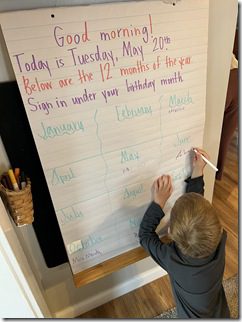 Good morning!
Today is Tuesday, May 20th
Below are the 12 months of the year.
Sign in under your birthday month.
January February March
April May June
July August
October